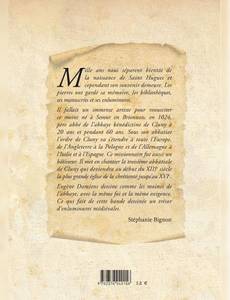 Mille ans nous séparent bientôt de
la naissance de Saint Hugues et
cependant son souvenir demeure. Les
pierres ont gardé sa mémoire, les bibliothèques,
ses manuscrits et ses enluminures.
Il fallait un immense artiste pour ressusciter
ce moine né à Semur en Brionnais, en 1024,
père abbé de l'abbaye bénédictine de Cluny à
20 ans et pendant 60 ans. Sous son abbatiat
l'ordre de Cluny va s'étendre à toute l'Europe,
de l'Angleterre à la Pologne et de l'Allemagne à
l'Italie et à l'Espagne. Ce missionnaire fut aussi un
bâtisseur. Il met en chantier la troisième abbatiale
de Cluny qui deviendra au début du XIIe siècle
la plus grande église de la chrétienté jusqu'au XVIe.
Eugène Damiens dessine comme les moines de
l'abbaye, avec la même foi et la même exigence.
Ce qui fait de cette bande dessinée un trésor
d'enluminures médiévales.
Stéphanie Bignon